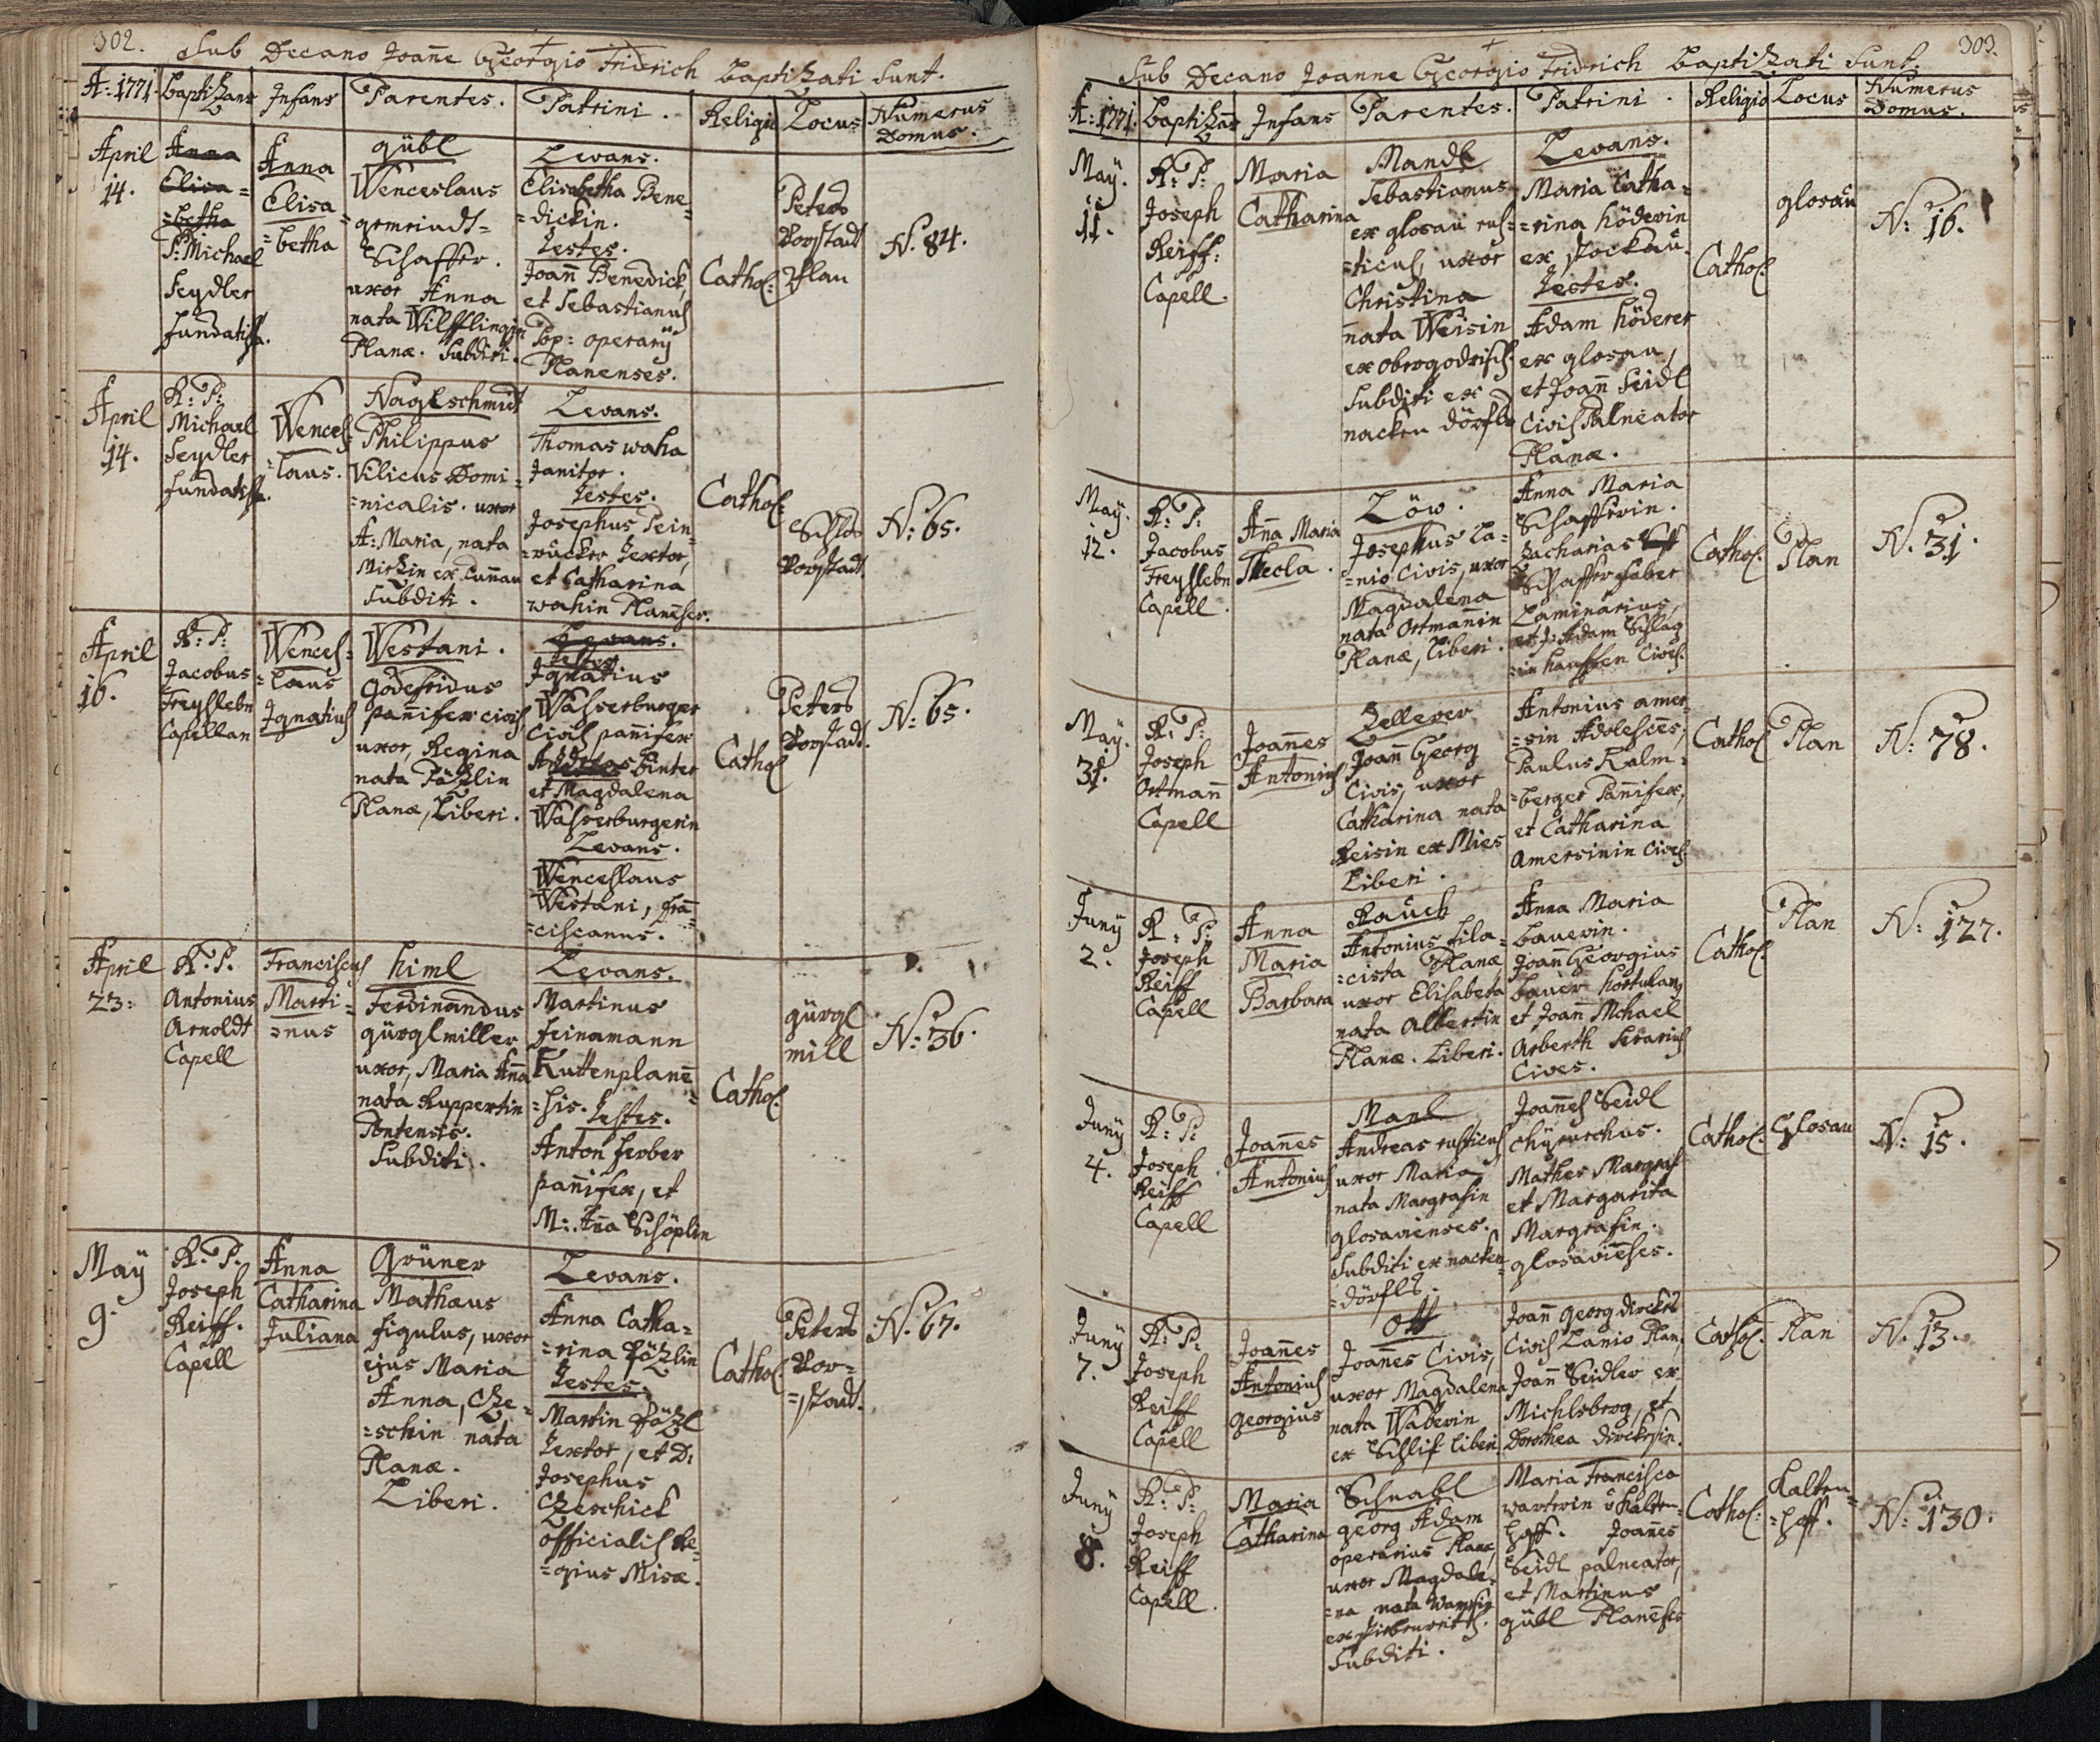 302.
Sub Decano Joañe Georgio Fridrich baptizati sunt.
A: 1771
baptizans
Infans
Parentes.
Patrini.
Religio
Locus
Numerus
Domus.
April
14.
Anna
Elisa=
=betha
P: Michael
Seydler
fundatista.
Anna
Elisa
=betha
gübl
Wenceslaus
gemeindt=
Schaffer.
uxor Anna
nata Wilfflingin
Planæ. Subditi.
Levans.
Elisabetha Bene=
=dickin.
Testes.
Joañ Benedick,
et Sebastianus
Pop: operarÿ
Planenses.
Cathol:
Peters
Vorstadt
Plan
N. 84.
April
14.
R: P:
Michael
Seydler
fundatista.
Wences=
=laus.
Naglschmidt
Philippus
Vilicus Domi=
=nicalis. uxor
A: Maria, nata
Mirzin ex Cuñau
Subditi.
Levans.
Thomas waha
Janitor.
Testes.
Josephus Pein=
=rücker Textor,
et Catharina
wahin Planeñses.
Cathol:
Schlos
Vorstadt.
N: 65.
April
16.
R: P:
Jacobus
Freyslebn
Capellan
Wences=
=laus
Ignatius
Westani.
Godefridus
pañifex civis
uxor Regina
nata Päzlin
Planæ, Liberi.
Levans.
Testes
Ignatius
Wasserburger
Civis pañifex
Binter
et Magdalena
Wasserburgerin
Levans.
Wenceslaus
Westani, frā=
=ciscanus.
Cathol
Peters
Vorstadt.
N: 65.
April
23:
R: P.
Antonius
Arnoldt
Capell
Franciscus
Marti=
=nus
himl
Ferdinandus
gürglmiller
uxor, Maria Aña
nata Ruppertin
Pontensis.
Subditi.
Levans.
Martinus
feinamann
Kuttenplanē=
=sis.
Testes.
Anton ferber
pañifex, et
M: Aña Schöplin
Cathol.
gürgl
mill
N: 36.
May
9.
R: P.
Joseph
Reiff.
Capell
Anna
Catharina
Juliana
Grüner
Mathæus
figulus, uxor
ejus Maria
Anna, Cze=
=schin nata
Planæ.
Liberi.
Levans.
Anna Catha=
=rina Päzlin
Testes.
Martin Päzl
Textor, et D:
Josephus
Czeschick
officialis Re=
=gius Misæ.
Cathol.
Peters
Vor=
=stadt.
N. 67.
303.
Sub Decano Joanne Georgio Fridrich baptizati sunt.
A: 1771.
baptizañs
Infans
Parentes.
Patrini.
Religio
Locus
Numerus
Domus.
May.
11.
R: P:
Joseph
Reiff:
Capell.
Maria
Catharina
Mandl
Sebastianus
ex glosau rus=
=ticus, uxor
Christina
nata Weisin
ex obergodrisch
Subditi ex
nacken dörfls
Levans.
Maria Catha=
=rina höderin
ex stockau.
Testes.
Adam höderer
ex glosau,
et Joañ Seidl
Civis Palneator
Planæ.
Cathol:
glosau
N: 16.
May.
12.
R: P:
Jacobus
Freyslebn
Capell.
Aña Maria
Thecla.
Löw.
Josephus La=
=nio Civis, uxor
Magdalena
nata Ortmañin
Planæ, Liberi.
Anna Maria
Schafferin.
Zacharias
Schaffer faber
Laminarius,
et J: Adam Schlag
=in hauffen Cives.
Cathol.
Plan
N. 31.
May.
31.
R: P:
Joseph
Ortmañ
Capell
Joañes
Antonius
Zellerer
Joañ Georg
Civis, uxor
Catharina nata
Reisin ex Mies
Liberi.
Antonius amer=
=sin Adolescēs,
Paulus Kalm=
=berger Pañifex,
et Catharina
Amersinin Cives.
Cathol
Plan
N: 78.
Junÿ
2.
R: P:
Joseph
Reiff
Capell
Anna
Maria
Barbara
Rauch
Antonius fila=
=cista Planæ
uxor Elisabeta
nata Albertin
Planæ. Liberi.
Anna Maria
bauerin.
Joañ Georgius
bauer hortulan9
et Joañ Michael
Arberth Serarius
Cives.
Cathol.
Plan
N: 127.
Junÿ
4.
R: P:
Joseph
Reiff
Capell
Joañes
Antonius
Manl
Andreas rusticus
uxor Maria
nata Margrafin
glosavienses.
Subditi ex nacken=
=dörfls.
Joañes Seidl
chÿrurchus.
Mathes Margraf
et Margarita
Margrafin.
glosavieñses.
Cathol.
Glosau
N: 15.
Junÿ
7.
R: P:
Joseph
Reiff
Capell
Joañes
Antonius
georgius
Ott
Joañes Civis,
uxor Magdalena
nata Waberin
ex Schlif liberi
Joañ georg dircks
Civis Lanio Plan,
Joañ Seidler ex
Michlsberg, et
Dorothea dircksin.
Cathol.
Plan
N. 13.
Junÿ
8.
R: P:
Joseph
Reiff
Capell.
Maria
Catharina
Schnabl
georg Adam
operarius Planæ,
uxor Magdale=
=na nata
Subditi.
Maria Francisca
warterin v. Kalten=
hoff. Joañes
Seidl palneator,
et Martinus
gübl Planēses
Cathol:
Kalten=
=hoff.
N: 130.